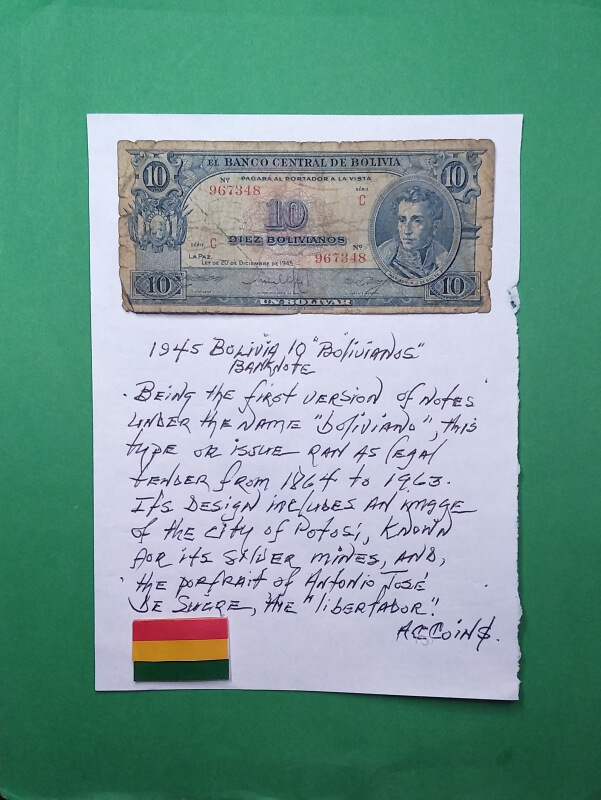 EL BANCO CENTRAL DE BOLIVIA
10 10
Nº PAGARÁ AL PORTADOR A LA VISTA
967348 SÉRIE C
10
SÉRIE C DIEZ BOLIVIANOS
Nº 967348
LA PAZ
LEY DE 20 DE DICIEMBRE DE 1945
10 10
UN BOLIVAR
1945 BOLIVIA 10 "BOLIVIANOS"
BANKNOTE
BEING the first version of NOTES
UNDER the NAME "boliviano", this
type OR issue RAN AS legal
tender from 1864 to 1963.
It's DESIGN includes AN image
of the city of Potosi, KNOWN
for its silver mines, AND,
the portrait of ANTONIO JOSÉ
DE SUCRE, the "libertador".
ACCOIN$.